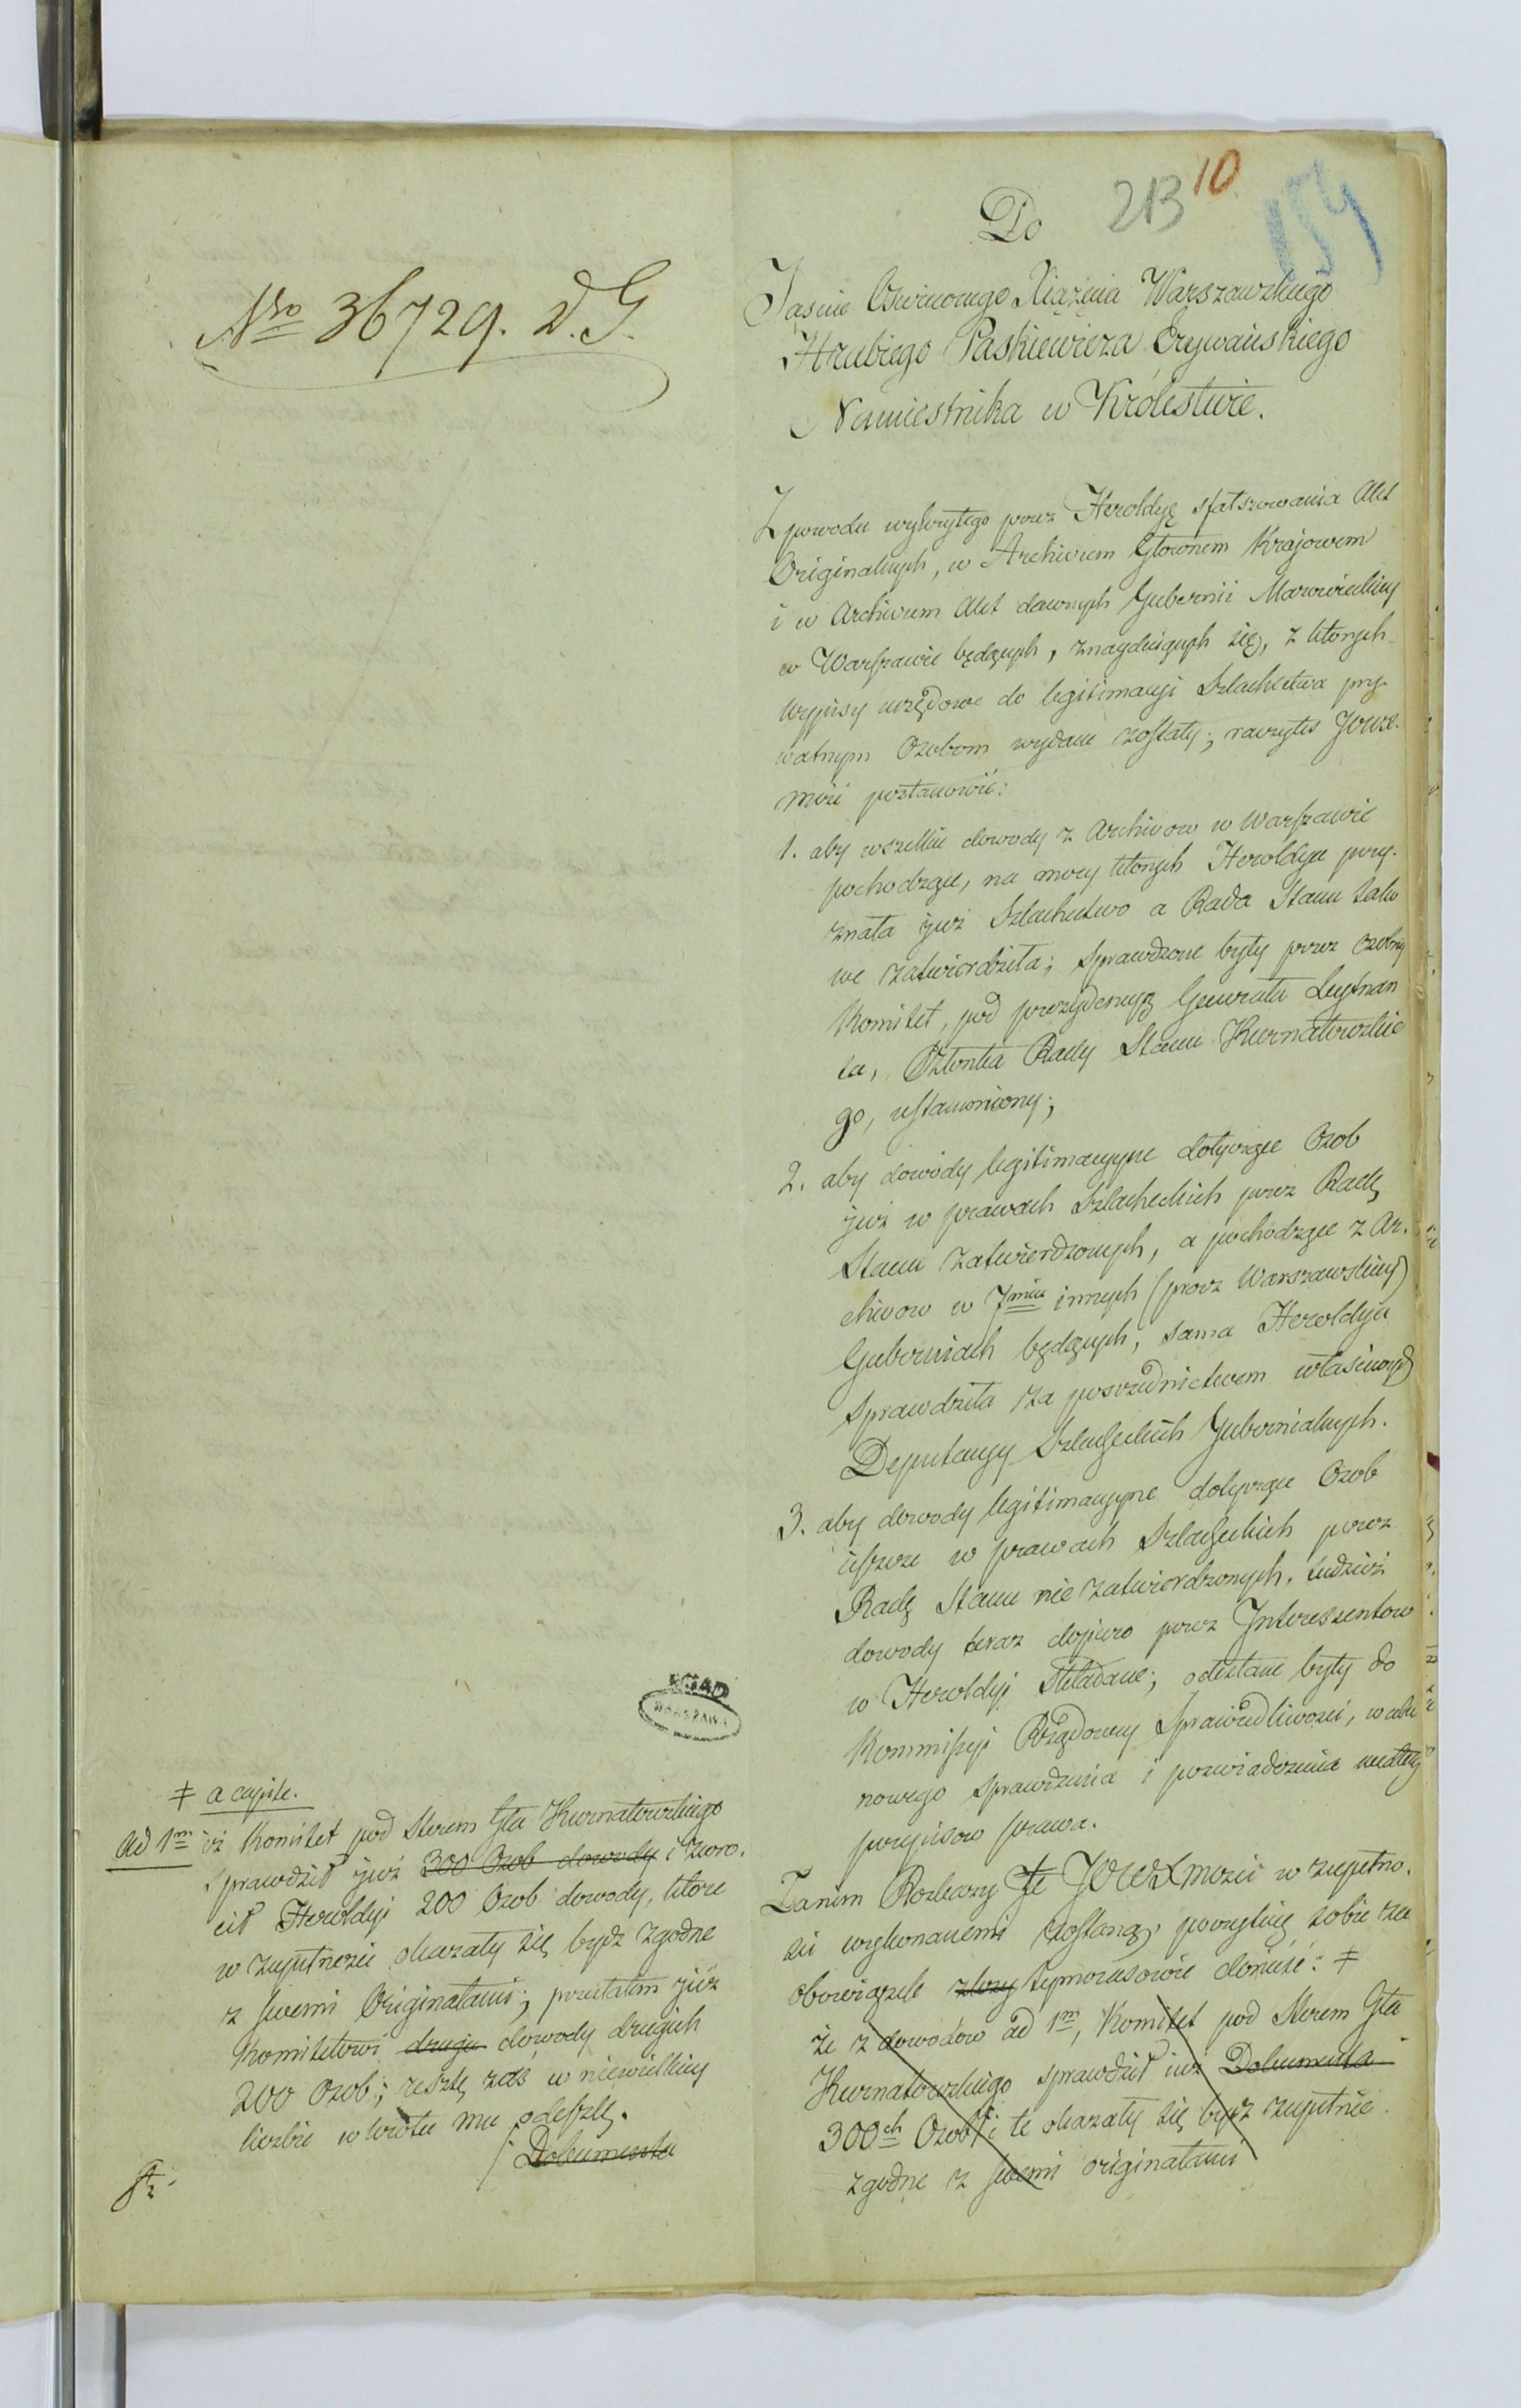 213 10
154
Do
Nro 36729. D. G.
Jasnie Oswieconego Xiążęcia Warszawskiego
Hrabiego Paskiewicza Erywańskiego
Namiestnika w Królestwie.
Z powodu wykrytego przez Heroldyę sfałszowania Akt
Originalnych, w Archiwum Głownem Krajowem
i w Archiwum Akt dawnych Gubernii Mazowieckiey
w Warszawie będących, znayduiących się, z których
wypisy urzędowe do legitimacyi Szlachectwa pry-
watnym Osobom wydane zostały; raczyłeś JOWX.
Mość postanowić:
1. aby wszelkie dowody z Archiwow w Warszawie
pochodzące, na mocy których Heroldya przy-
znała już Szlachectwo a Rada Stanu tako
we zatwierdziła; sprawdzone były przez osobny
Komitet, pod prezydencyą Generała Leytnan
ta, Członka Rady Stanu Kurnatowskie
go, ustanowiony;
2. aby dowody legitimacyyne dotyczące Osob
już w prawach Szlacheckich przez Radę
Stanu zatwierdzonych, a pochodzące z Ar-
chiwow w 7miu innych (prócz Warszawskiey)
Guberniach będących, sama Heroldya
sprawdziła za posrzednictwem własciwych
Deputacyy Szlacheckich Gubernialnych.
3. aby dowody legitimacyyne dotyczące Osob
ieszcze w prawach Szlacheckich przez
Radę Stanu nie zatwierdzonych, tudzież
dowody teraz dopiero przez Interessentow
w Heroldyi składane; odesłane były do
Kommissyi Rządowey Sprawiedliwości, w celu
nowego sprawdzenia i poswiadczenia wedle
przepisow prawa.
Zanim Rozkazy te JOWXMości w zupełno-
ści wykonanemi zostaną, poczytuię sobie za
obowiązek złozy tymczasowie donieść: ǂ
że z dowodow ad 1m, Komitet pod Sterem Gła
Kurnatowskiego sprawdził iuż Dokumenta
300ch Osob i te okazały się bydź zupełnie
zgodne z swemi originałami
AGAD
WARSZAWA
ǂ a capite.
Ad 1m iż Komitet pod Sterem Gła Kurnatowskiego
sprawdził już 300 Osob dowody i zwro-
cił Heroldyi 200 Osob dowody, które
w zupełności okazały się bydź zgodne
z swemi Originałami; przesłałem już
Komitetowi drugie dowody drugich
200 Osob; resztę zaś w niewielkiey
liczbie wkrótce mu odeszlę.
Dokumenta